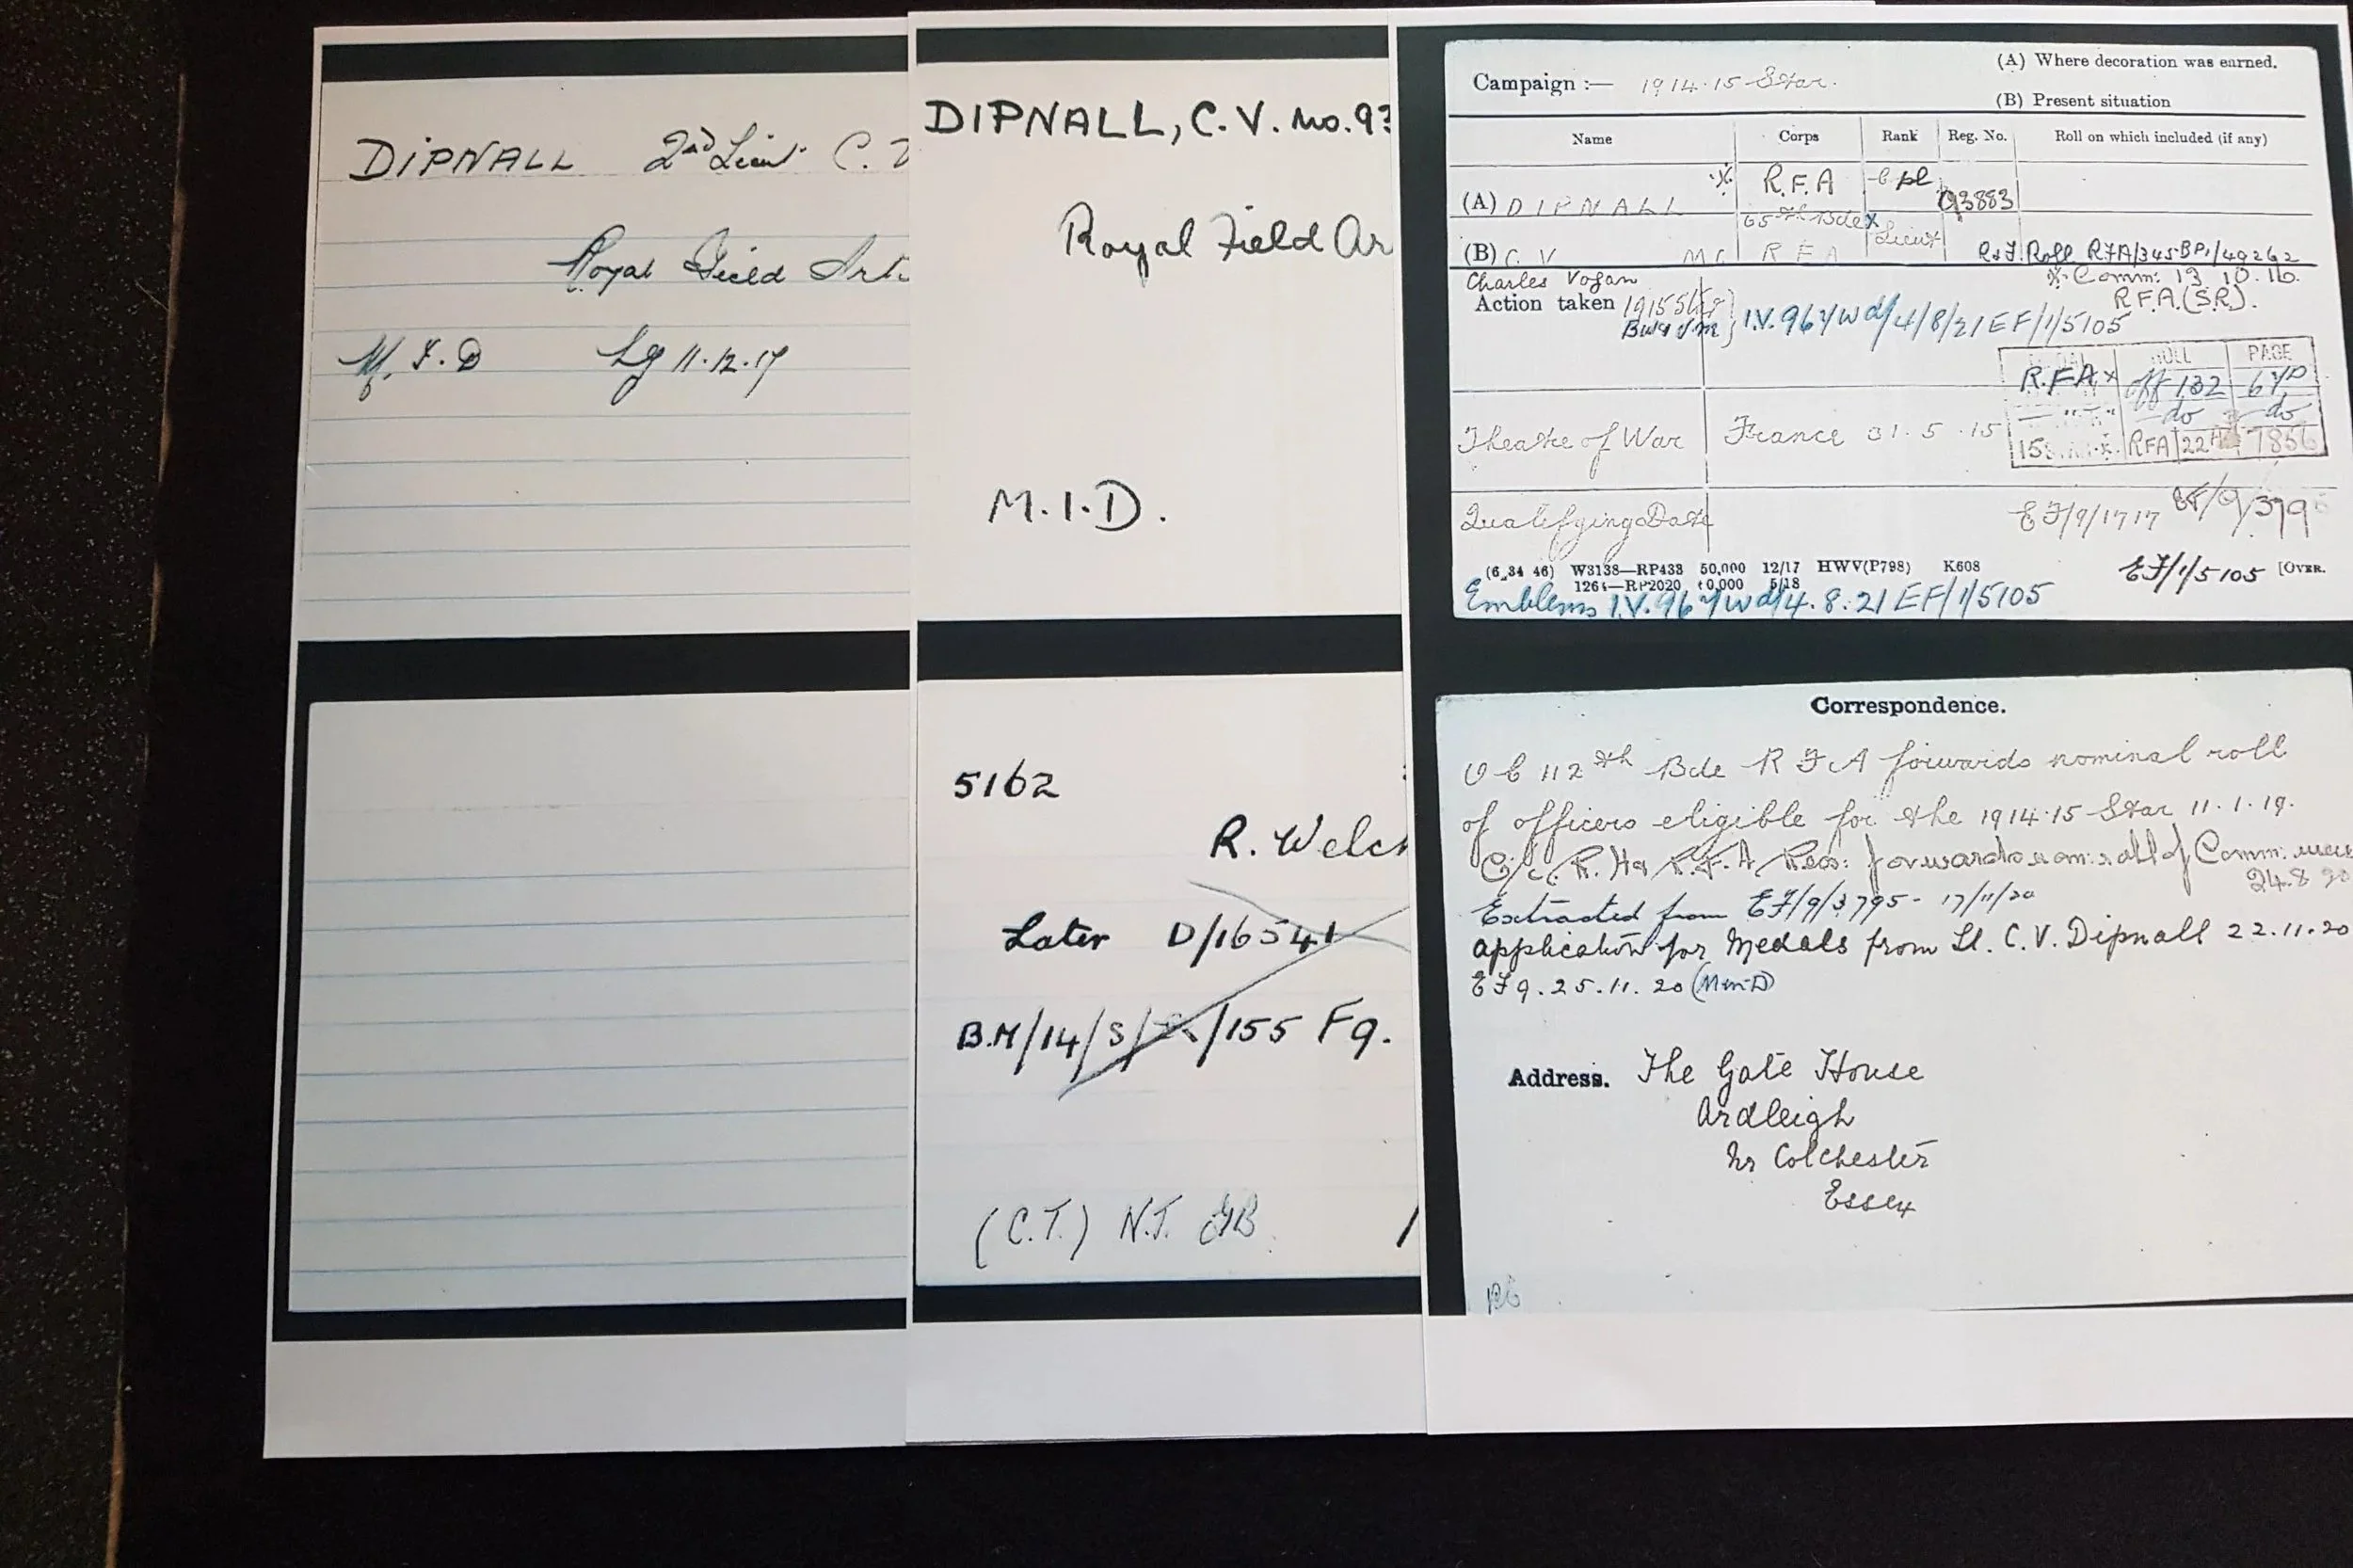 DIPNALL 2nd Lieut. C.
Royal Field Art
M. I. D Lg 11.12.17
DIPNALL, C.V. No. 93
Royal Field Ar
M.I.D.
5162
R. Welch
Later D/16541
B.M/14/S/ /155 Fq.
(C.T.) N.T. GB
Campaign :— 1914-15 Star.
(A) Where decoration was earned.
(B) Present situation
Name Corps Rank Reg. No. Roll on which included (if any)
(A) DIPNALL R.F.A Cpl 93883
65th Bde x
(B) C V MC R F A Lieut R & F. Roll RFA/345BP1/49262
Charles Vogan x Comm: 13.10.16.
R.F.A.(S.R).
Action taken 1915 Star
BW & VM } I.V. 967 wd/4/8/21 EF/1/5105
ROLL PAGE
R.F.A x Off 132 67D
do do
15 RFA 22 7856
Theatre of War France 31.5.15
Qualifying Date EF/9/1717 EF/9/3795
(6 34 46) W3138—RP433 50,000 12/17 HWV(P798) K608
1264—RP2020 10,000 5/18 EF/1/5105 [OVER.
Emblems I.V. 967 wd/4.8.21 EF/1/5105
Correspondence.
O C 112th Bde R F A forwards nominal roll
of officers eligible for the 1914-15 Star 11.1.19.
O/c. R. H & R.F.A Recs: forwards nom: roll of Comm:
24.8.20
Extracted from EF/9/3795- 17/11/20
application for Medals from Lt. C.V. Dipnall 22.11.20
EF9. 25.11.20 (Men-D)
Address. The Gate House
Ardleigh
Nr Colchester
Essex